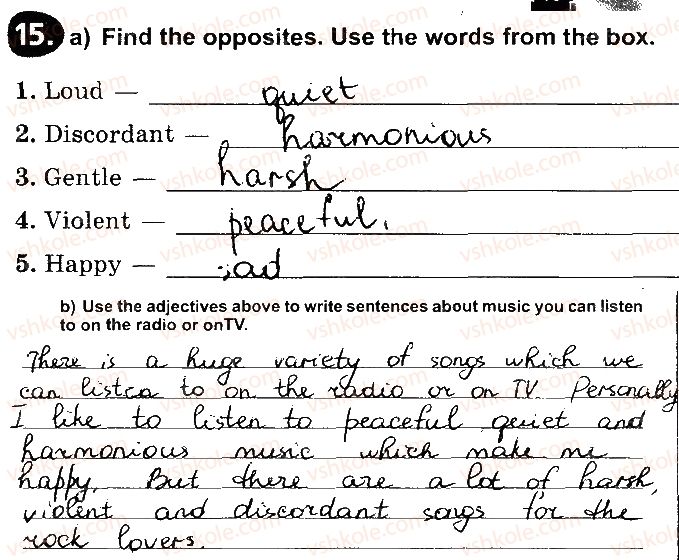 15. a) Find the opposites. Use the words from the box.
1. Loud — quiet
2. Discordant — harmonious
3. Gentle — harsh
4. Violent — peaceful.
5. Happy — sad
b) Use the adjectives above to write sentences about music you can listen
to on the radio or onTV.
There is a huge variety of songs which we
can listen to on the radio or on TV. Personally
I like to listen to peaceful quiet and
harmonious music which make me
happy. But there are a lot of harsh,
violent and discordant songs for the
rock lovers.